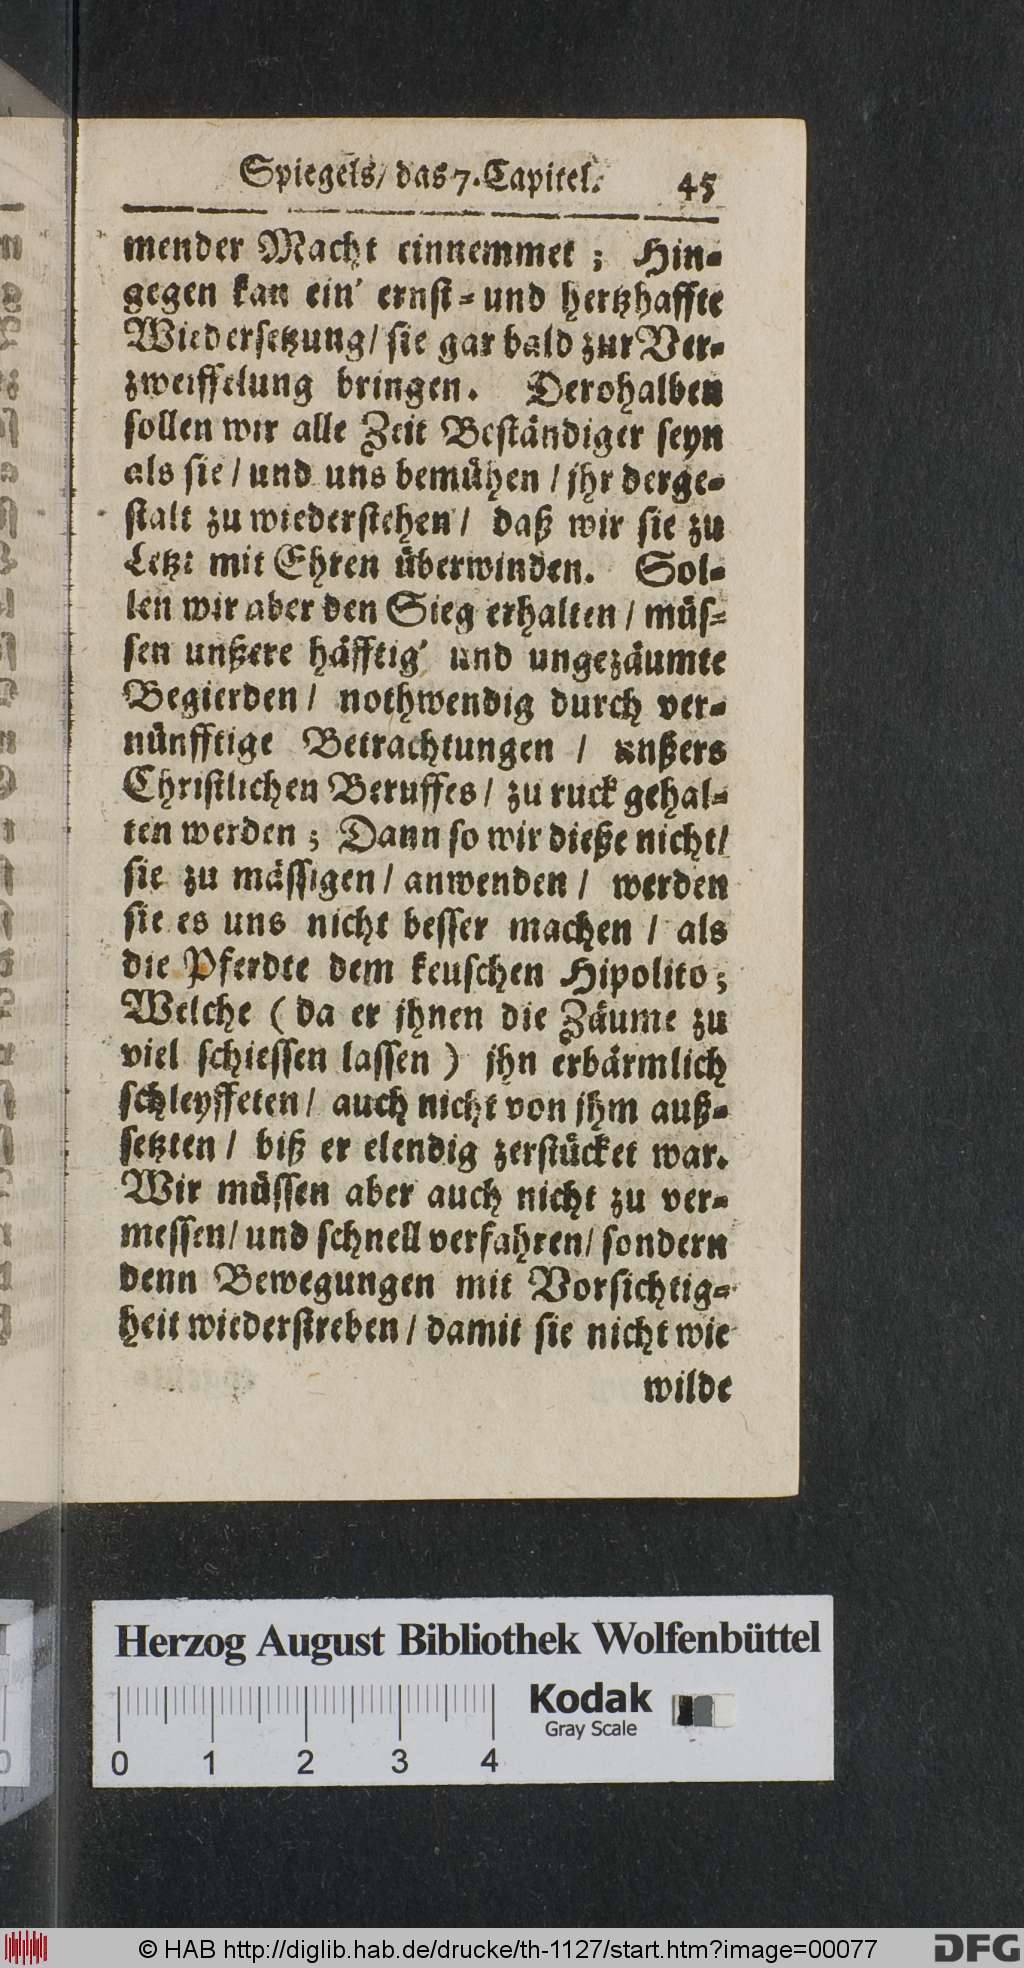 Spiegels/ das 7. Capitel. 45
mender Macht einnemmet; Hin-
gegen kan ein' ernst- und hertzhaffte
Wiedersetzung/ sie gar bald zur Ver-
zweiffelung bringen. Derohalben
sollen wir alle Zeit Beständiger seyn
als sie / und uns bemühen / jhr derge-
stalt zu wiederstehen / daß wir sie zu
Letzt mit Ehren überwinden. Sol-
len wir aber den Sieg erhalten / müs-
sen unßere häfftig' und ungezäumte
Begierden / nothwendig durch ver-
nünfftige Betrachtungen / unßers
Christlichen Beruffes / zu ruck gehal-
ten werden; Dann so wir dieße nicht/
sie zu mässigen / anwenden / werden
sie es uns nicht besser machen / als
die Pferdte dem keuschen Hipolito;
Welche ( da er jhnen die Zäume zu
viel schiessen lassen ) jhn erbärmlich
schleyffeten / auch nicht von jhm auß-
setzten / biß er elendig zerstücket war.
Wir müssen aber auch nicht zu ver-
messen/ und schnell verfahren/ sondern
denn Bewegungen mit Vorsichtig-
heit wiederstreben / damit sie nicht wie
wilde
Herzog August Bibliothek Wolfenbüttel
Kodak
Gray Scale
0 1 2 3 4
© HAB http://diglib.hab.de/drucke/th-1127/start.htm?image=00077
DFG